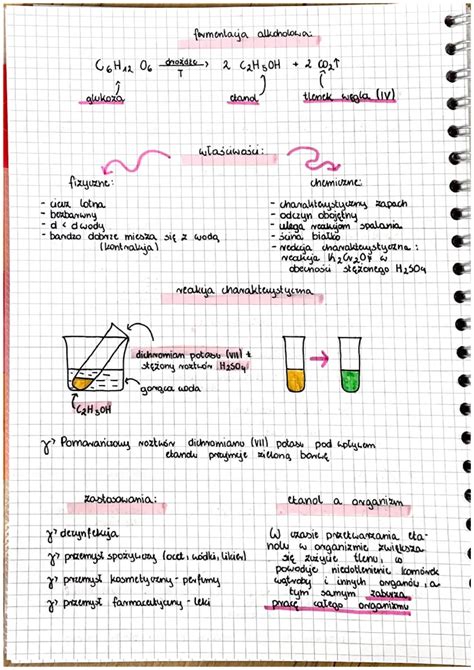 fermentacja alkoholowa:
C6H12O6 drożdże T → 2 C2H5OH + 2 CO2↑
glukoza etanol tlenek węgla (IV)
właściwości:
fizyczne:
- ciecz lotna
- bezbarwny
- d < d wody
- bardzo dobrze miesza się z wodą
(kontrakcja)
chemiczne:
- charakterystyczny zapach
- odczyn obojętny
- ulega reakcjom spalania
- ścina białko
- reakcja charakterystyczna:
reakcja K2Cr2O7 w
obecności stężonego H2SO4
reakcja charakterystyczna
dichromian potasu (VII) +
stężony roztwór H2SO4
gorąca woda
C2H5OH
Pomarańczowy roztwór dichromianu (VII) potasu pod wpływem
etanolu przyjmuje zieloną barwę
zastosowania:
dezynfekcja
przemysł spożywczy (ocet, wódki, likier)
przemysł kosmetyczny - perfumy
przemysł farmaceutyczny - leki
etanol a organizm
W czasie przetwarzania eta-
nolu w organizmie zwiększa
się zużycie tlenu, co
powoduje niedotlenienie komórek
wątroby i innych organów, a
tym samym zaburza
pracę całego organizmu